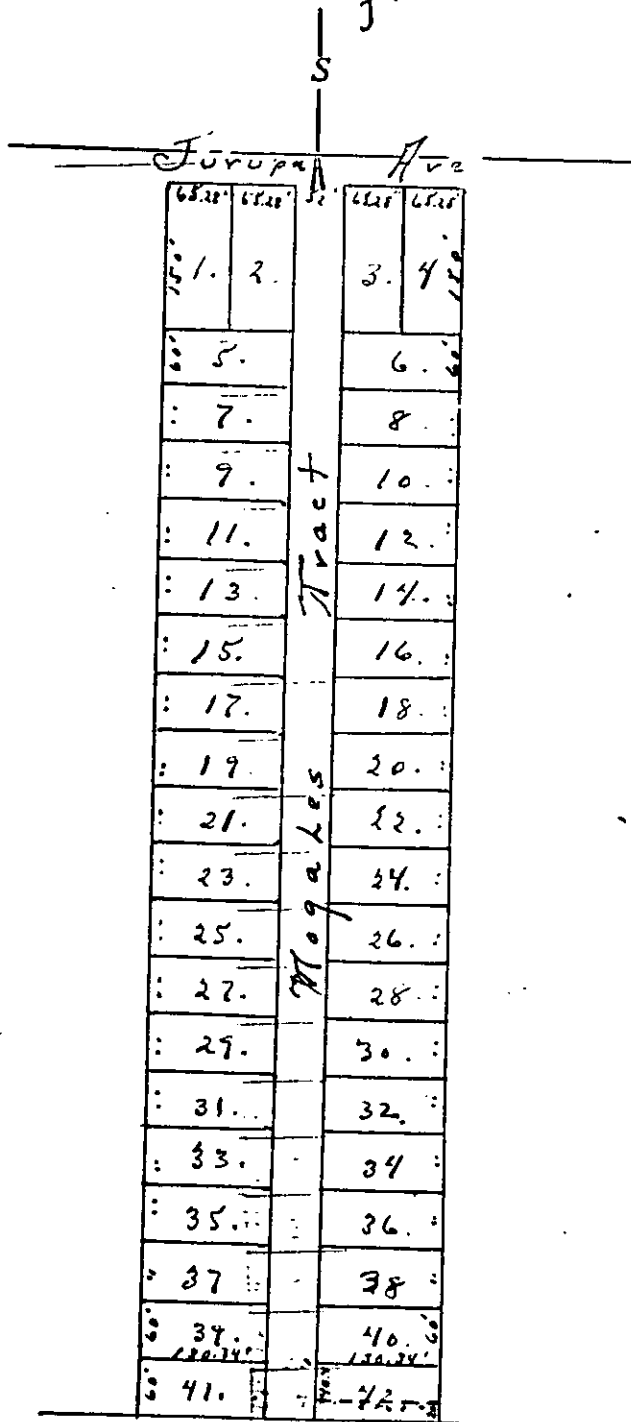 S
Jurupa Ave
65.28' 65.28' 52' 65.28' 65.28'
150' 1. 2. 3. 4 150'
60' 5. 6. 60'
7. 8
9. 10.
11. 12.
13. 14.
15. 16.
17. 18.
19 20.
21. 22.
23. 24.
25. 26.
27. 28
29. 30.
31. 32.
33. 34
35. 36.
37 38
60' 39. 40. 60'
130.34' 130.34'
60' 41. 42
Nogales Tract